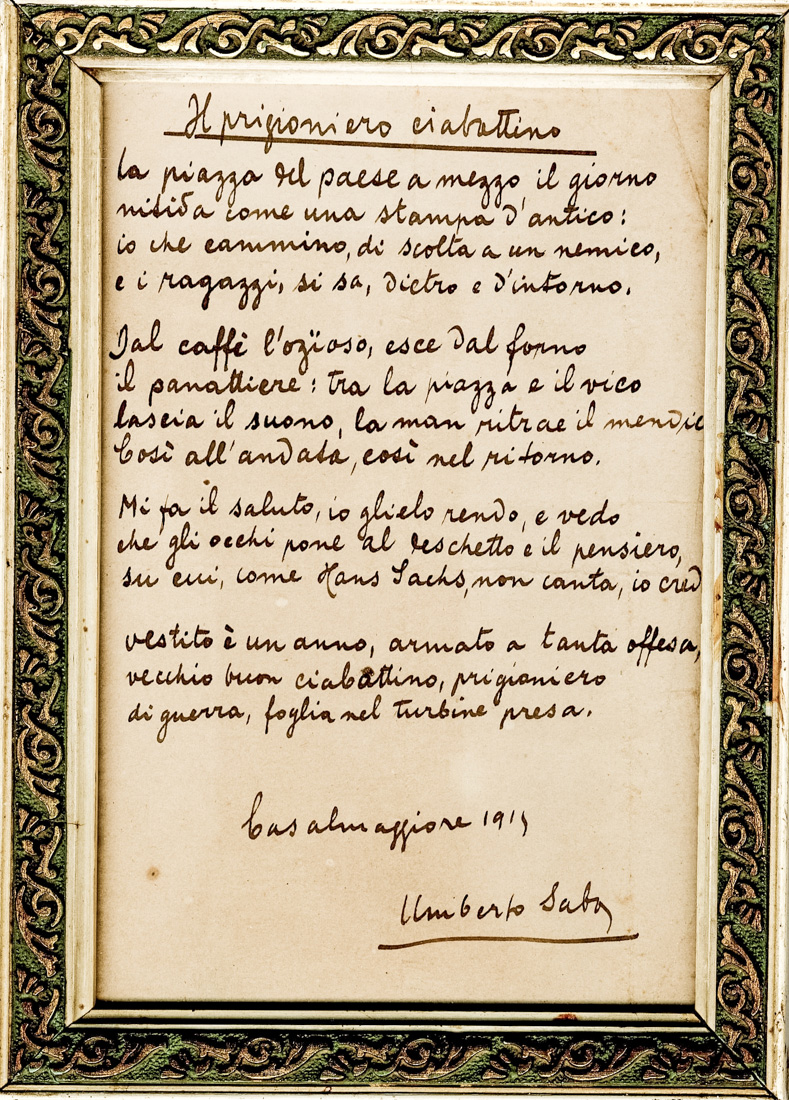 Il prigioniero ciabattino
la piazza del paese a mezzo il giorno
nitida come una stampa d'antico:
io che cammino, di scolta a un nemico,
e i ragazzi, si sa, dietro e d'intorno.
Dal caffè l'ozïoso, esce dal forno
il panattiere: tra la piazza e il vico
lascia il suono, la man ritrae il mendic
Così all'andata, così nel ritorno.
Mi fa il saluto, io glielo rendo, e vedo
che gli occhi pone al deschetto e il pensiero,
su cui, come Hans Sachs, non canta, io cred
vestito è un anno, armato a tanta offesa,
vecchio buon ciabattino, prigioniero
di guerra, foglia nel turbine presa.
Casalmaggiore
Umberto Saba